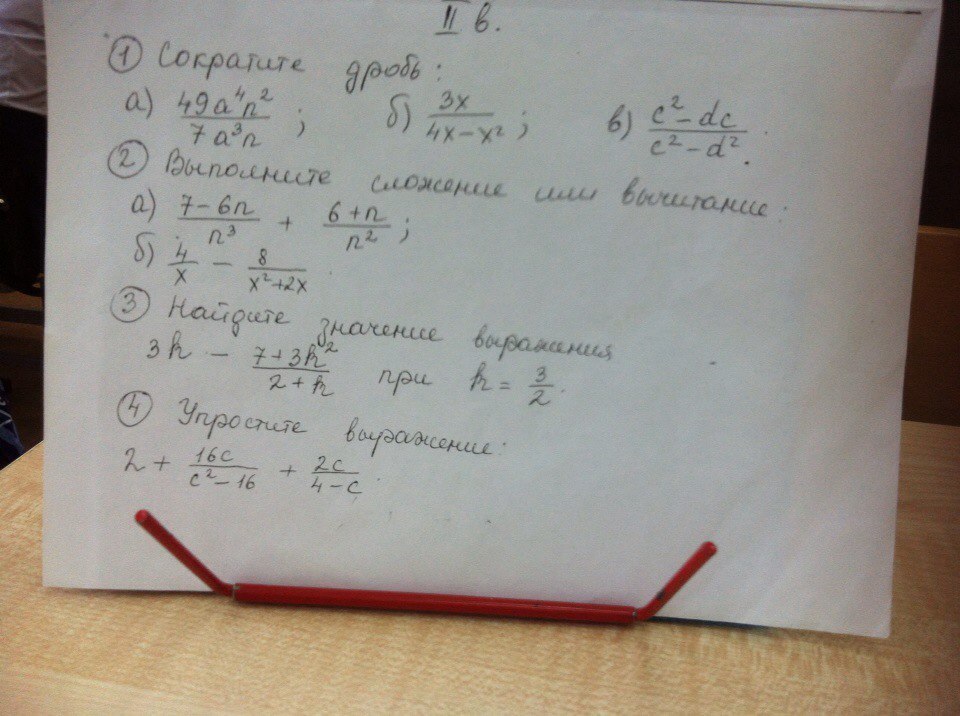 II в.
① Сократите дробь:
а) 49a⁴n²/7a³n; б) 3x/4x−x²; в) c²−dc/c²−d².
② Выполните сложение или вычитание:
а) 7−6n/n³ + 6+n/n²;
б) 4/x − 8/x²+2x
③ Найдите значение выражения
3k − 7+3k²/2+k при k = 3/2.
④ Упростите выражение:
2 + 16c/c²−16 + 2c/4−c.